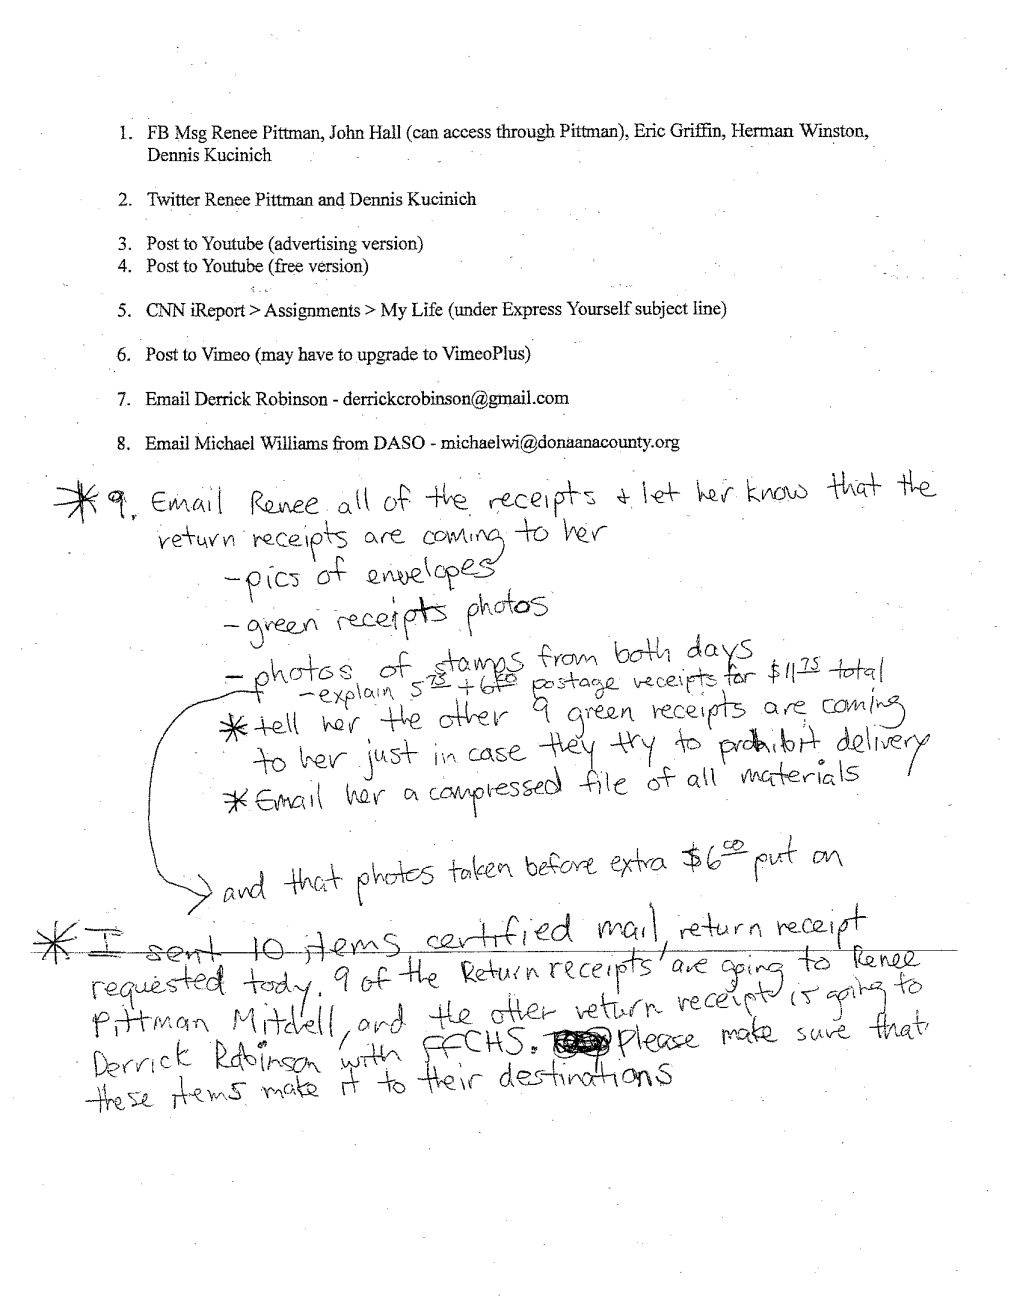 1. FB Msg Renee Pittman, John Hall (can access through Pittman), Eric Griffin, Herman Winston,
Dennis Kucinich
2. Twitter Renee Pittman and Dennis Kucinich
3. Post to Youtube (advertising version)
4. Post to Youtube (free version)
5. CNN iReport > Assignments > My Life (under Express Yourself subject line)
6. Post to Vimeo (may have to upgrade to VimeoPlus)
7. Email Derrick Robinson - derrickcrobinson@gmail.com
8. Email Michael Williams from DASO - michaelwi@donaanacounty.org
* 9. Email Renee all of the receipts + let her know that the
return receipts are coming to her
- pics of envelopes
- green receipts photos
- photos of stamps from both days
- explain 5 75 + 6 00 postage receipts for $11 75 total
* tell her the other 9 green receipts are coming
to her just in case they try to prohibit delivery
* Email her a compressed file of all materials
and that photos taken before extra $6 00 put on
* I sent 10 items certified mail, return receipt
requested tody. 9 of the Return receipts are going to Renee
Pittman Mitchell, and the other return receipt is going to
Derrick Robinson with FFCHS. Please make sure that
these items make it to their destinations